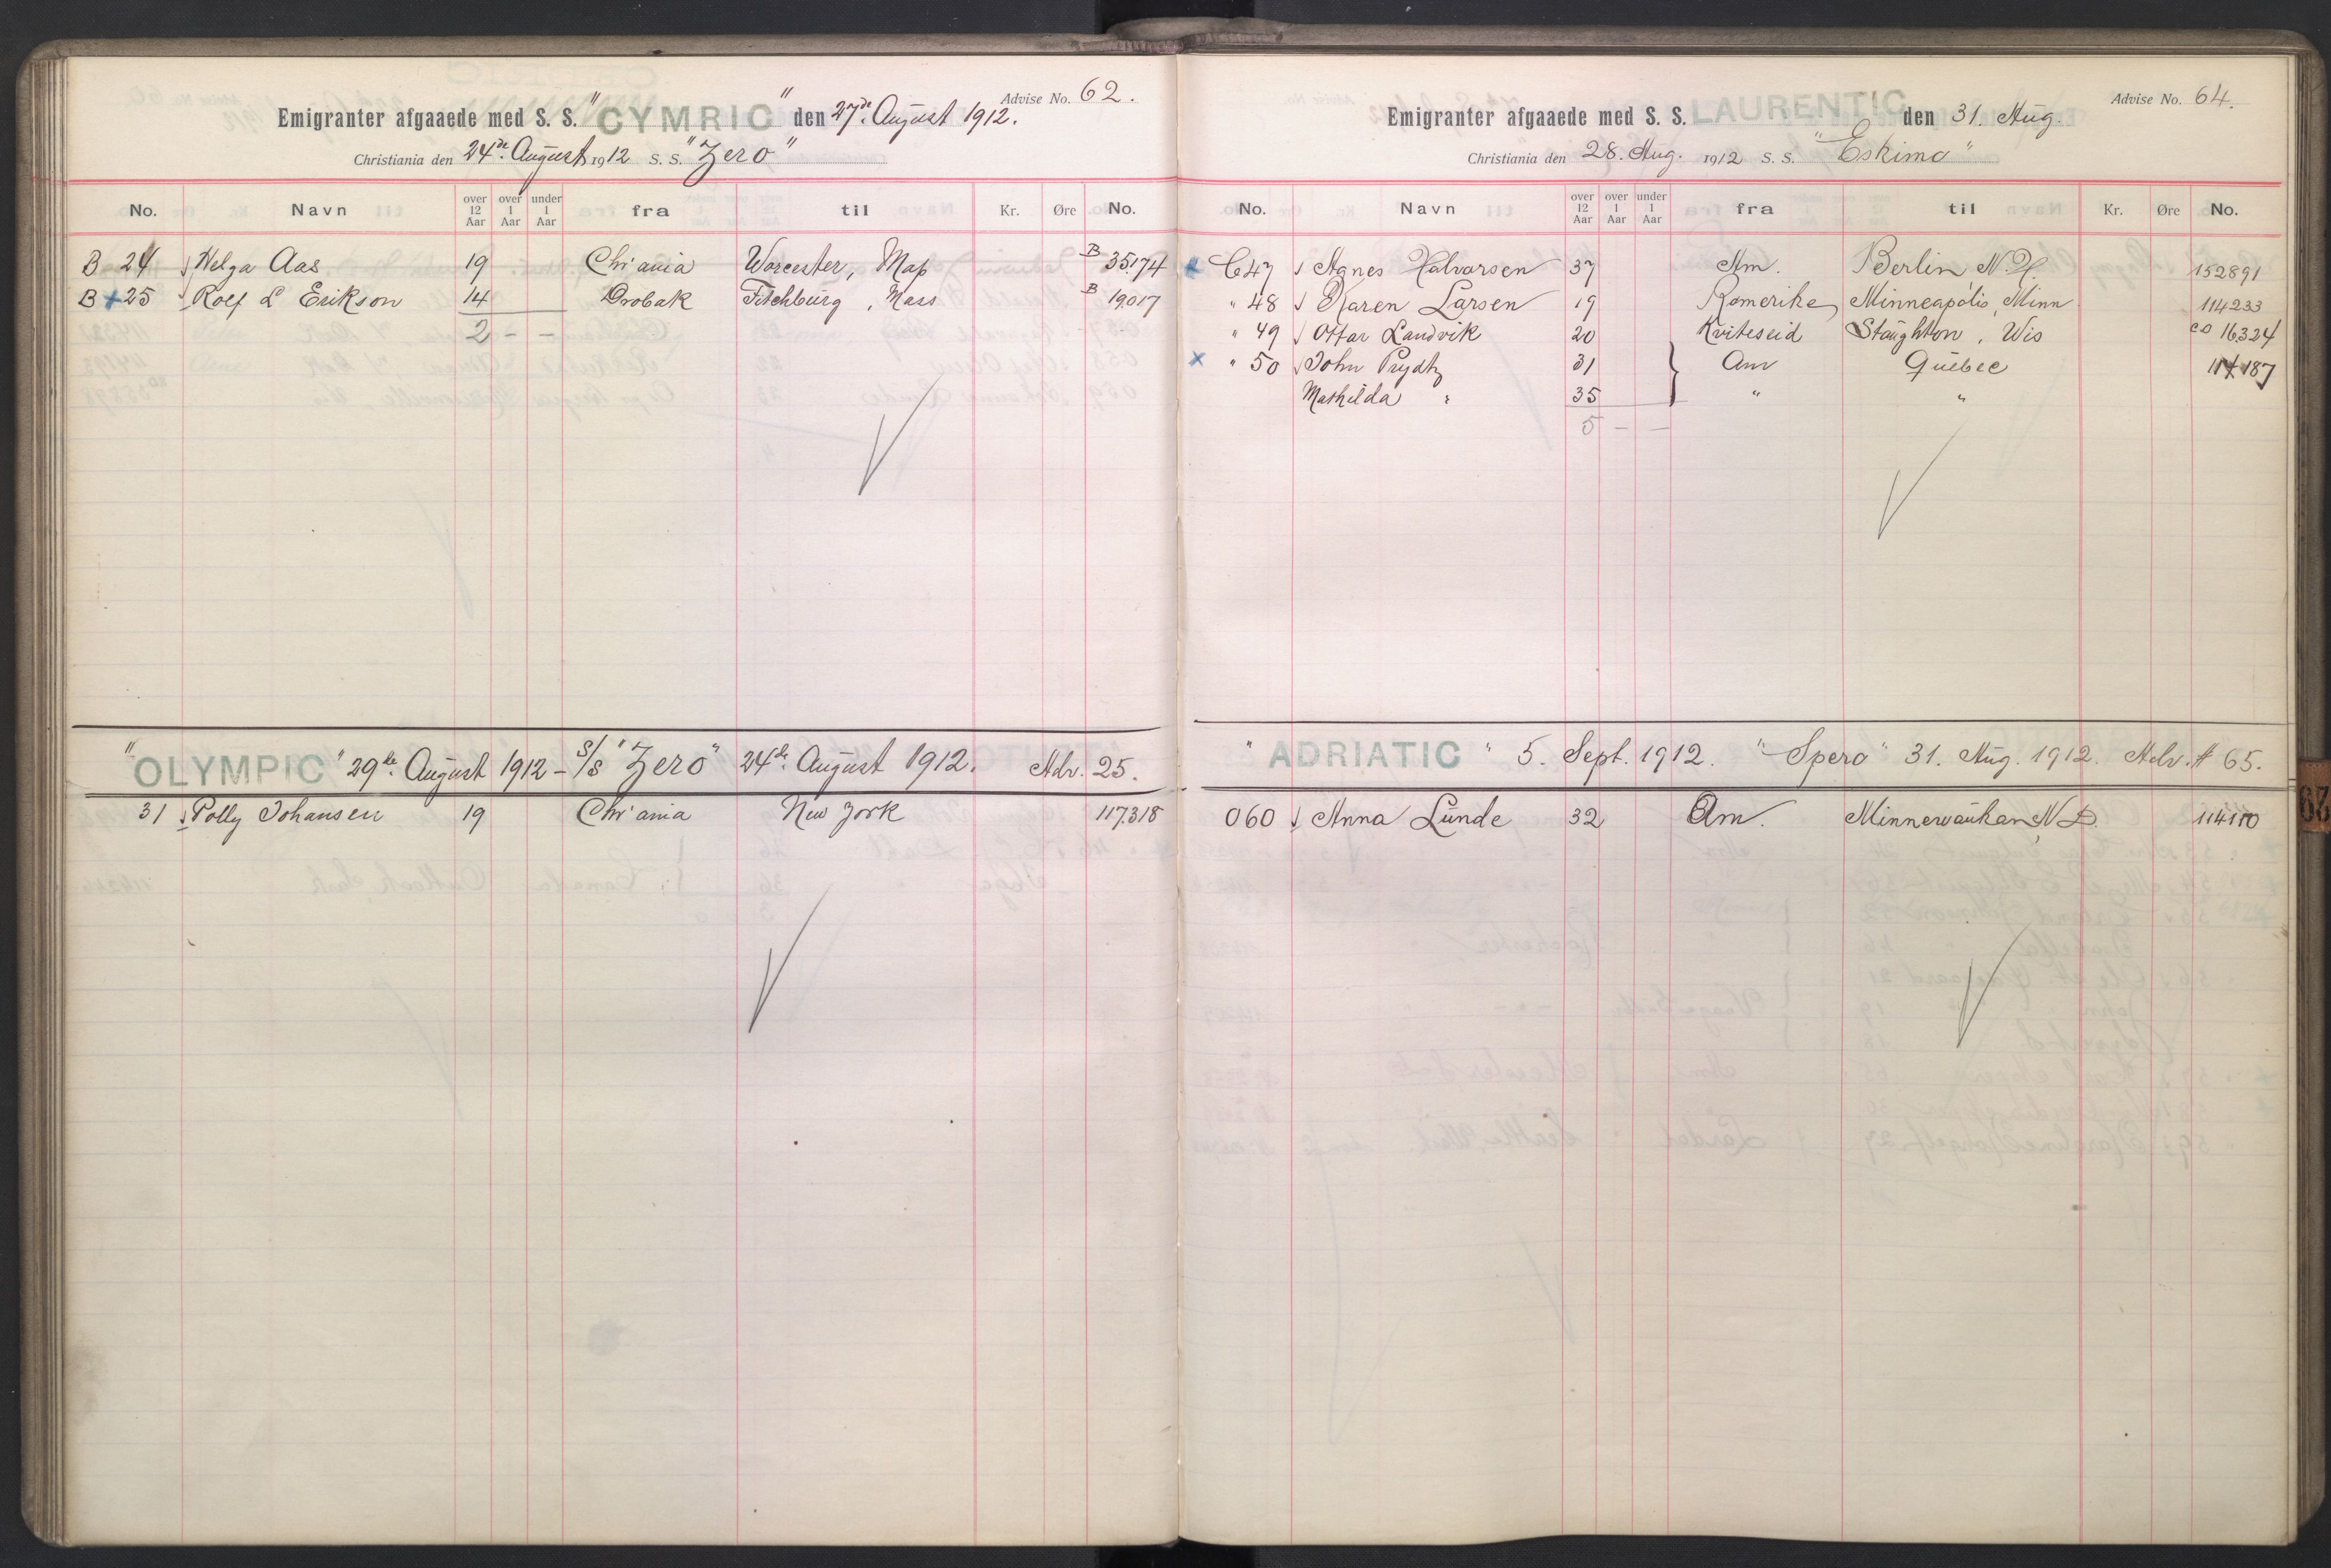 Advise No. 62.
Emigranter afgaaede med S. S. "CYMRIC" den 27de August 1912.
Christiania den 24de August 1912 S. S. "Zero"
No. Navn over 12 Aar over 1 Aar under 1 Aar fra til Kr. Øre No.
B 24 Helga Aas 19 Chr'ania Worcester, Mass B 35174
B + 25 Rolf L Erikson 14 Drobak Fitchburg, Mass B 19017
2 - -
"OLYMPIC" 29de August 1912 - S/S "Zero" 24de August 1912. Adv. 25.
31 Polly Johansen 19 Chr'ania New York 117318
Advise No. 64.
Emigranter afgaaede med S. S. LAURENTIC den 31. Aug.
Christiania den 28. Aug. 1912 S. S. "Eskimo"
No. Navn over 12 Aar over 1 Aar under 1 Aar fra til Kr. Øre No.
x C 47 Agnes Halvorsen 37 Am. Berlin N.H. 152891
" 48 Karen Larsen 19 Romerike Minneapolis, Minn 114233
" 49 Ottar Landvik 20 Kviteseid Staughton, Wis co 16324
x " 50 John Prydtz 31 } Am Quebec 187
Mathilda " 35 " "
5 - -
"ADRIATIC" 5. Sept. 1912. "Spero" 31. Aug. 1912. Adv. # 65.
060 Anna Lunde 32 Am. Minnewaukan, N.D.